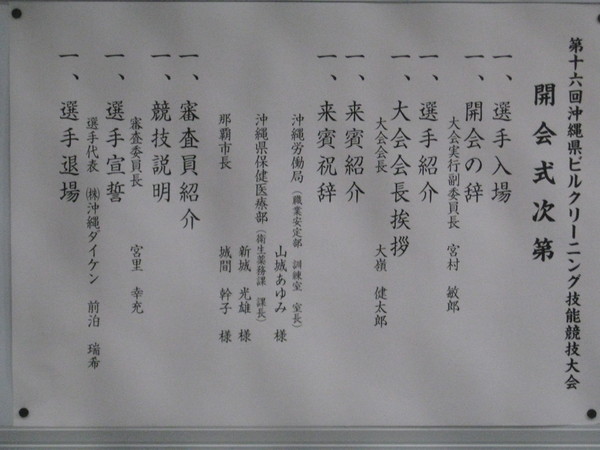 第十六回沖縄県ビルクリーニング技能競技大会
開会式次第
一、選手入場
一、開会の辞
大会実行副委員長 宮村 敏郎
一、選手紹介
一、大会会長挨拶
大会会長 大嶺 健太郎
一、来賓紹介
一、来賓祝辞
沖縄労働局（職業安定部 訓練室 室長）
山城あゆみ 様
沖縄県保健医療部（衛生薬務課 課長）
新城 光雄 様
那覇市長 城間 幹子 様
一、審査員紹介
一、競技説明
審査委員長 宮里 幸充
一、選手宣誓
選手代表 ㈱沖縄ダイケン 前泊 瑞希
一、選手退場